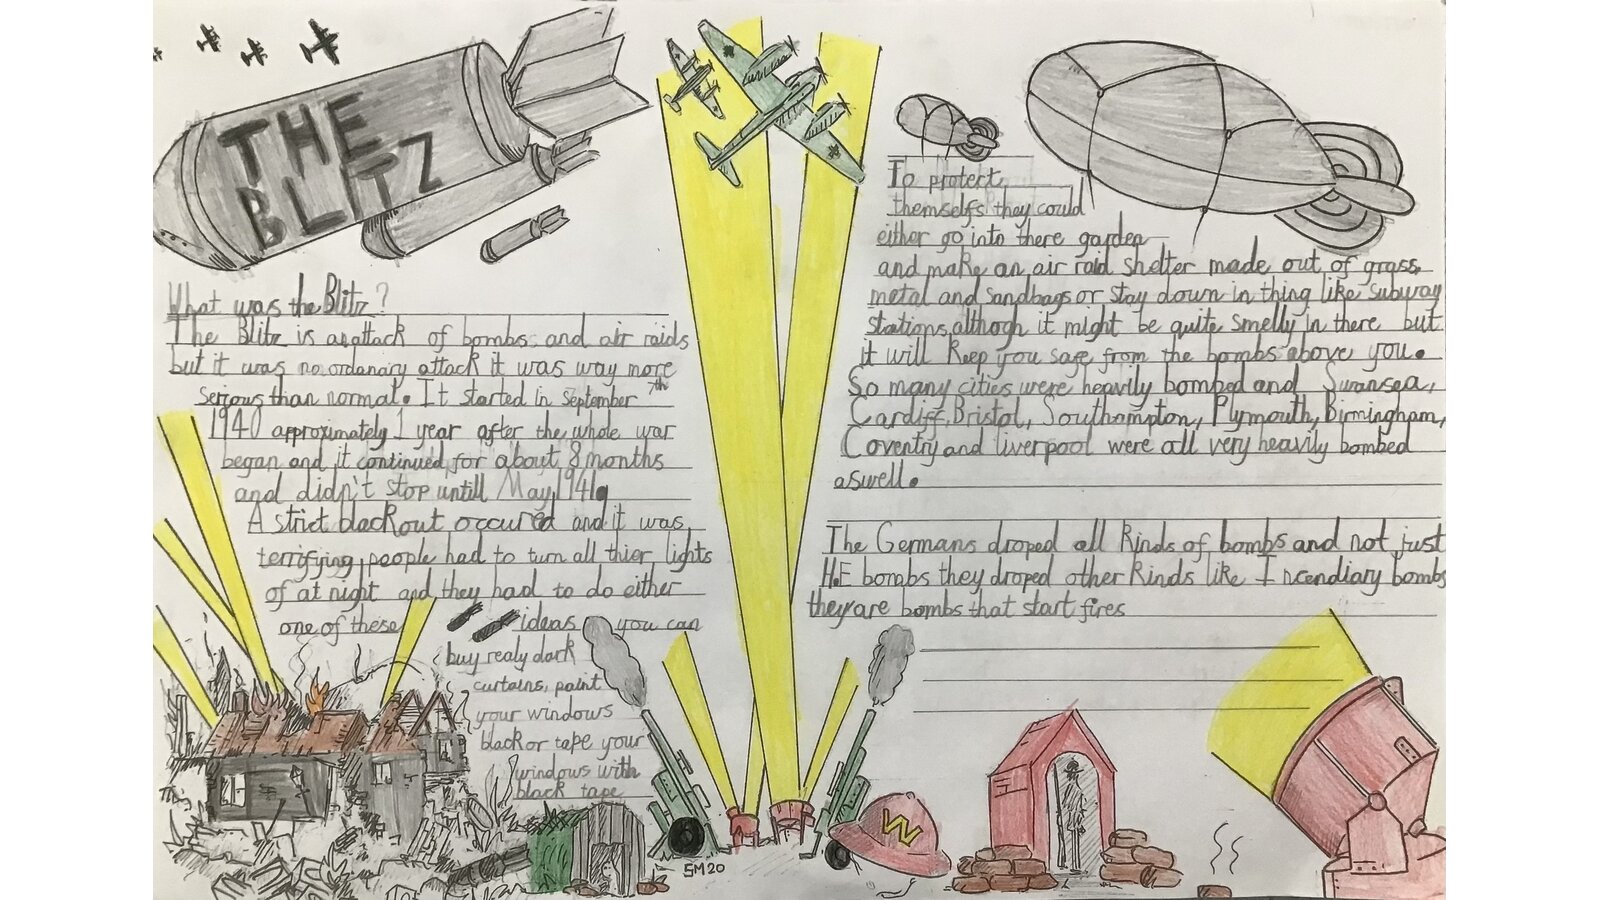 THE
BLITZ
What was the Blitz?
The Blitz is an attack of bombs and air raids
but it was no ordanary attack it was way more
serious than normal. It started in September 7th
1940 approximately 1 year after the whole war
began and it continued for about 8 months
and didn't stop untill May 1941.
A strict blackout occured and it was
terrifying people had to turn all thier lights
of at night and they had to do either
one of these ideas you can
buy realy dark
curtains, paint
your windows
black or tape your
windows with
black tape
To protect
themselfs they could
either go into there garden
and make an air raid shelter made out of grass,
metal and sandbags or stay down in thing like subway
stations, althogh it might be quite smelly in there but
it will keep you safe from the bombs above you.
So many cities were heavily bombed and Swansea,
Cardiff, Bristol, Southampton, Plymouth, Birmingham,
Coventry and liverpool were all very heavily bombed
aswell.
The Germans droped all kinds of bombs and not just
H.E bombs they droped other kinds like Incendiary bombs
they are bombs that start fires
W
SM20